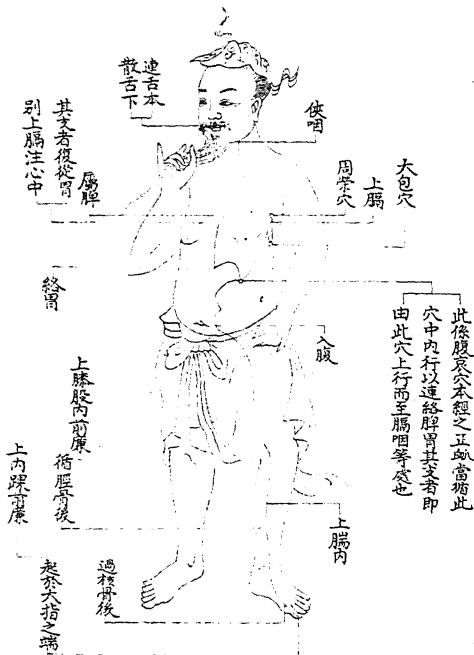 連舌本
散舌下
俠咽
其支者復從胃
別上膈注心中
屬脾
周榮穴
上膈
大包穴
絡胃
入腹
此係腹哀穴本經之正脈當循此
穴中內行以連絡脾胃其支者即
由此穴上行而至膈咽等處也
上膝股內前廉
循脛骨後
上內踝前廉
上腨內
過核骨後
起於大指之端